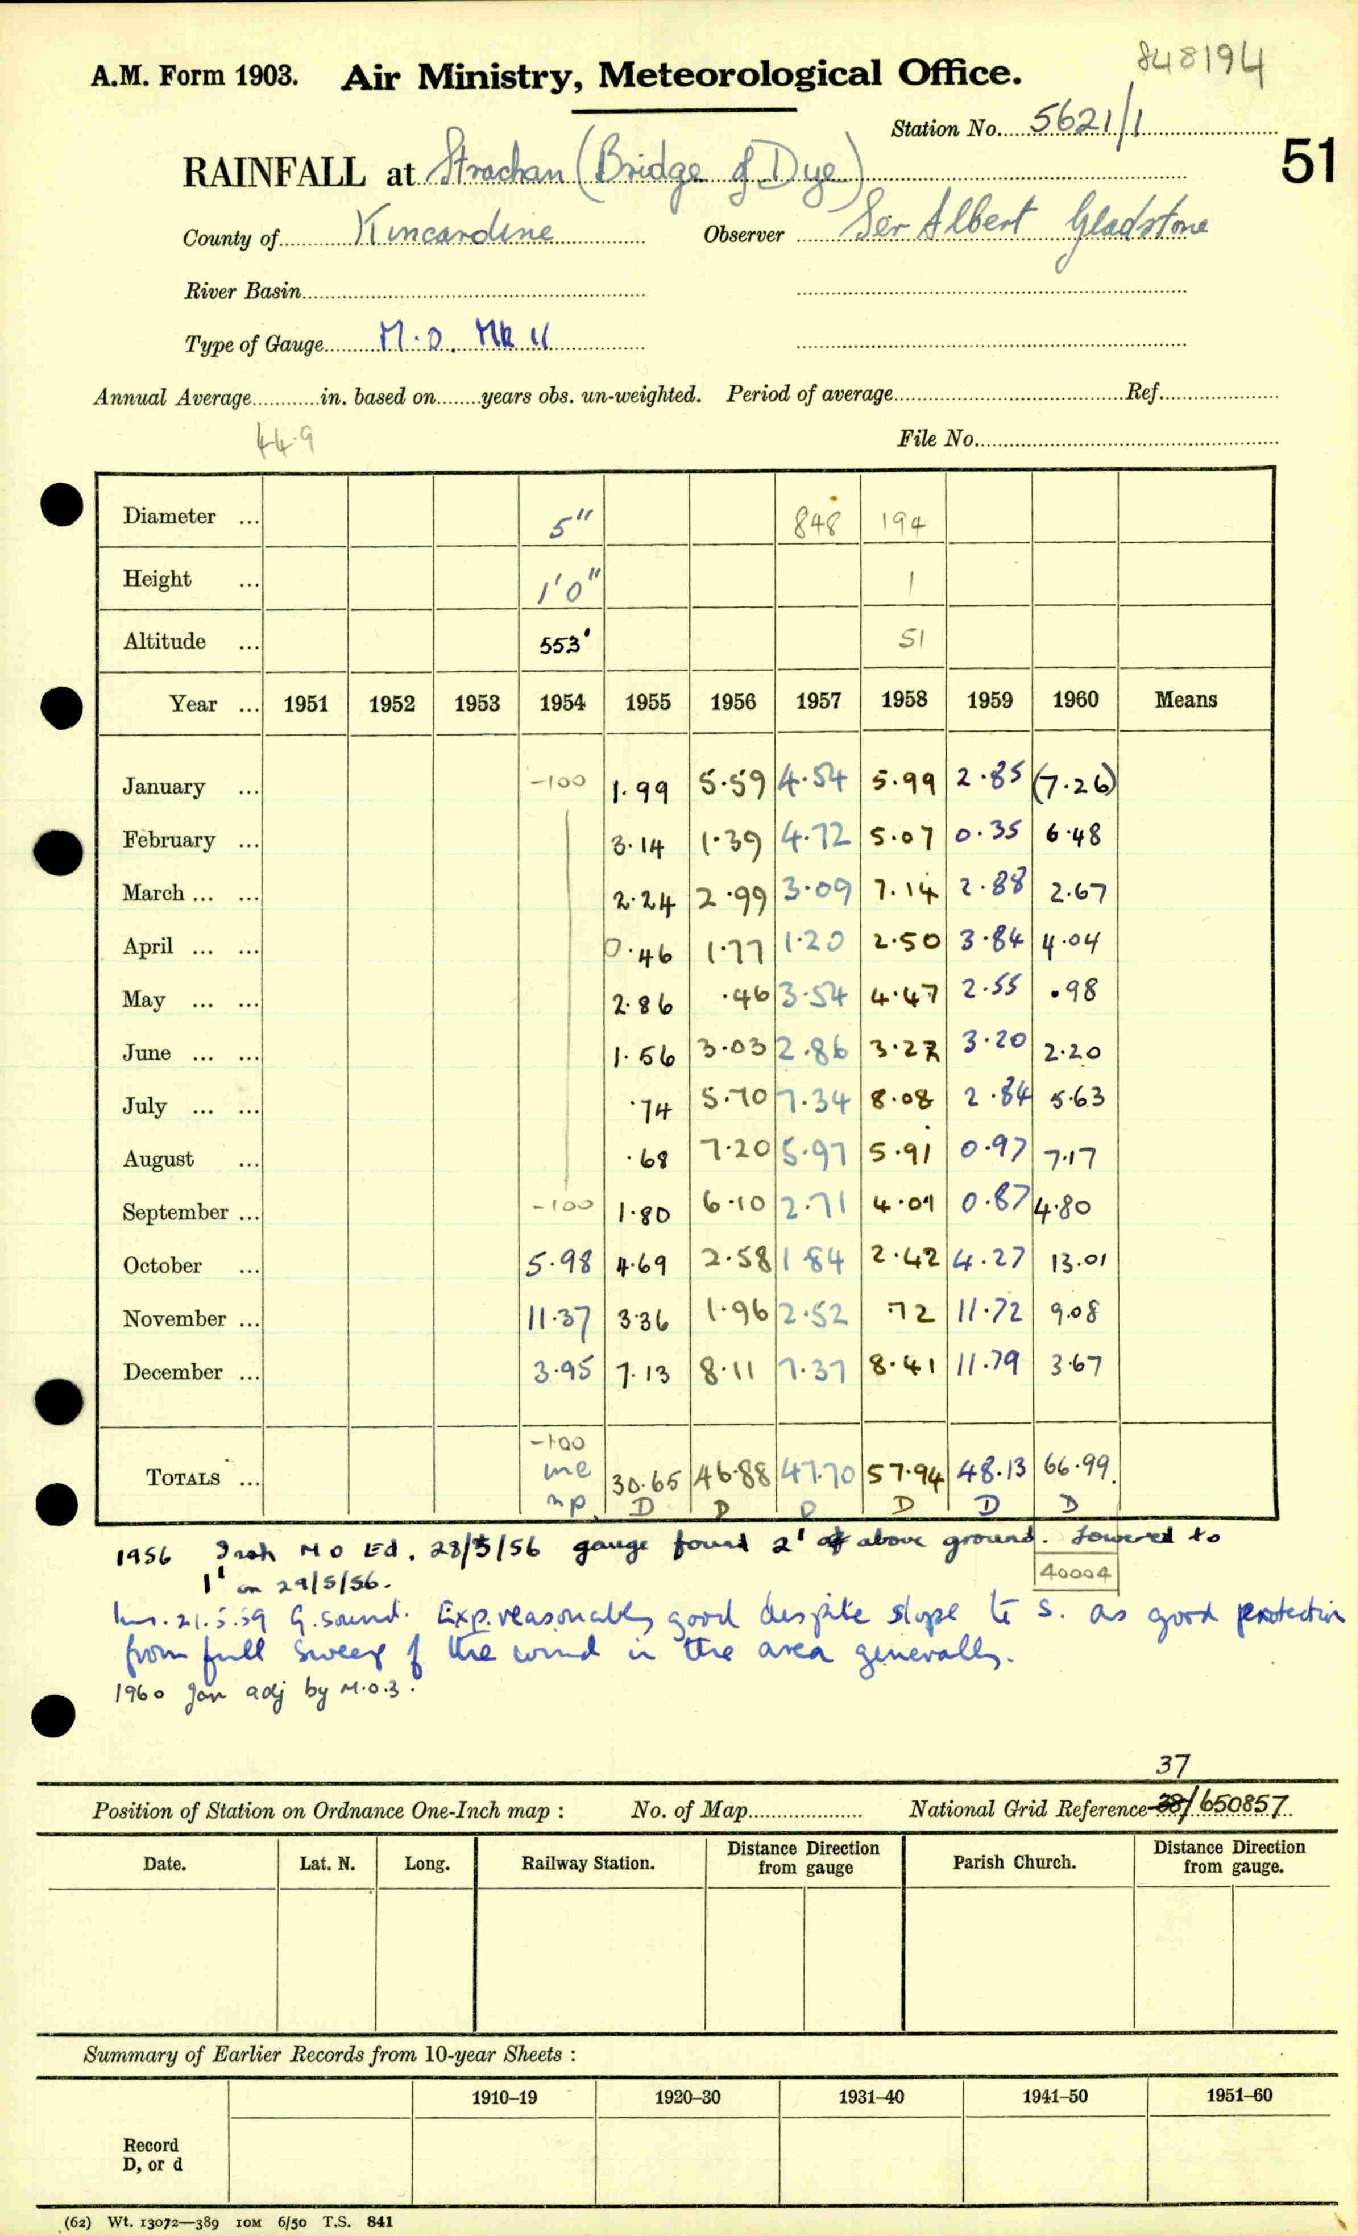 848194
A.M. Form 1903. Air Ministry, Meteorological Office.
Station No. 5621/1
51
RAINFALL at Strachan (Bridge of Dye)
County of Kincardine Observer Sir Albert Gladstone
River Basin
Type of Gauge M.O. Mk II
Annual Average in. based on years obs. un-weighted. Period of average Ref.
44.9 File No.
Diameter ... 5" 848 194
Height ... 1'0" 1
Altitude ... 553' 51
Year ... 1951 1952 1953 1954 1955 1956 1957 1958 1959 1960 Means
January ... -100 1.99 5.59 4.54 5.99 2.85 (7.26)
February ... 3.14 1.39 4.72 5.07 0.35 6.48
March ... ... 2.24 2.99 3.09 7.14 2.88 2.67
April ... ... 0.46 1.77 1.20 2.50 3.84 4.04
May ... ... 2.86 .46 3.54 4.47 2.55 .98
June ... ... 1.56 3.03 2.86 3.27 3.20 2.20
July ... ... .74 5.70 7.34 8.08 2.84 5.63
August ... .68 7.20 5.97 5.91 0.97 7.17
September ... -100 1.80 6.10 2.71 4.01 0.87 4.80
October ... 5.98 4.69 2.58 1.84 2.42 4.27 13.01
November ... 11.37 3.36 1.96 2.52 .72 11.72 9.08
December ... 3.95 7.13 8.11 7.37 8.41 11.79 3.67
-100
TOTALS ... inc 30.65 46.88 47.70 57.94 48.13 66.99
np. D D D D D D
1956 Insp. M O Ed. 28/5/56 gauge found 2' above ground. Lowered to
1' on 29/5/56.
40004
Ins. 21.5.59 G. sound. Exp. reasonably good despite slope to S. as good protection
from full sweep of the wind in the area generally.
1960 Jan adj by M.O.3.
37
Position of Station on Ordnance One-Inch map : No. of Map National Grid Reference 38/650857
Date. Lat. N. Long. Railway Station. Distance Direction from gauge Parish Church. Distance Direction from gauge.
Summary of Earlier Records from 10-year Sheets :
1910–19 1920–30 1931–40 1941–50 1951–60
Record
D, or d
(62) Wt. 13072—389 10M 6/50 T.S. 841